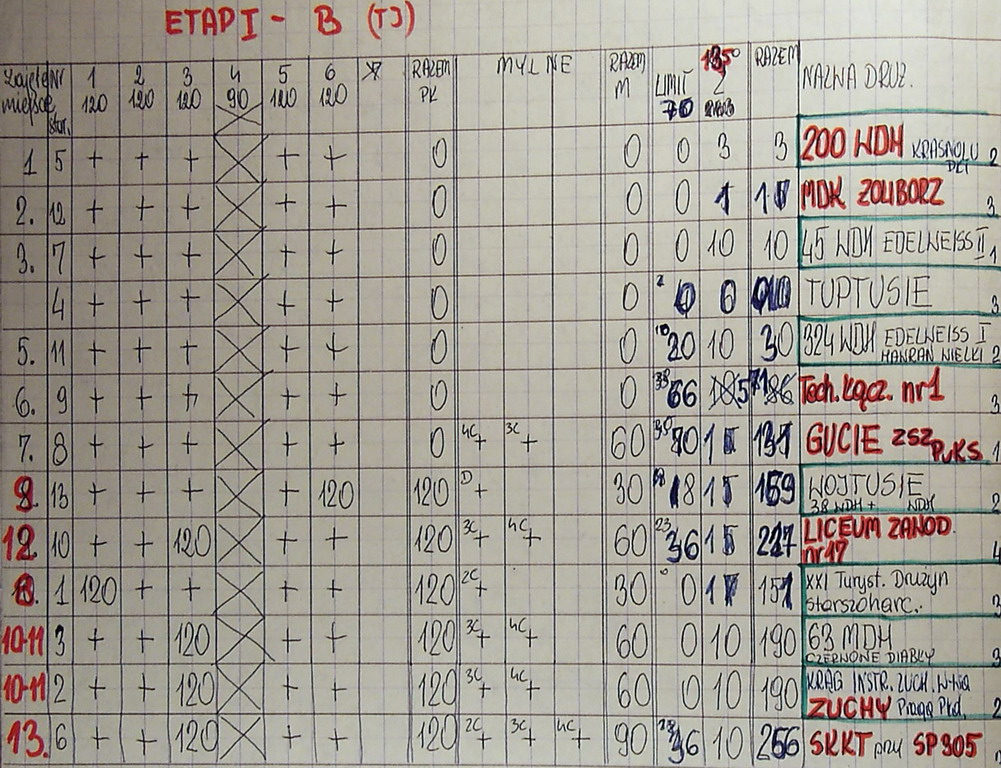 ETAP I - B (TJ)
Zajęte miejsce Nr star. 1 120 2 120 3 120 4 90 5 120 6 120 RAZEM PK MYLNE RAZEM M LIMIT 70 135° RAZEM NAZWA DRUŻ.
1 5 + + + + + 0 0 0 3 3 200 WDH KRASNOLUDKI 2
2. 12 + + + + + 0 0 0 1 MDK ZOLIBORZ 3
3. 7 + + + + + 0 0 0 10 10 45 WDH EDELWEISS II 1
4 + + + + + 0 0 0 0 TUPTUSIE 3
5. 11 + + + + + 0 0 20 10 30 324 WDH EDELWEISS I 2
6. 9 + + + + + 0 0 38 66 Tech. Łącz. nr 1 3
7. 8 + + + + + 0 4C+ 3C+ 60 GUCIE ZSZ PWKS 1
13 + + + + 120 120 D+ 30 18 169 WOJTUSIE 2
12. 10 + + 120 + + 120 3C+ 4C+ 60 23 36 LICEUM ZAWOD. nr 17 4
1 120 + + + + 120 2C+ 30 0 XXI Turyst. Drużyn Starszoharc. 3
10-11 3 + + 120 + + 120 3C+ 4C+ 60 0 10 190 63 MDH CZERWONE DIABŁY 3
10-11 2 + + 120 + + 120 3C+ 4C+ 60 0 10 190 KRĄG INSTR. ZUCH. ZUCHY Praga Płd. 2
13. 6 + + 120 + + 120 2C+ 3C+ 4C+ 90 36 10 256 SKKT przy SP 305